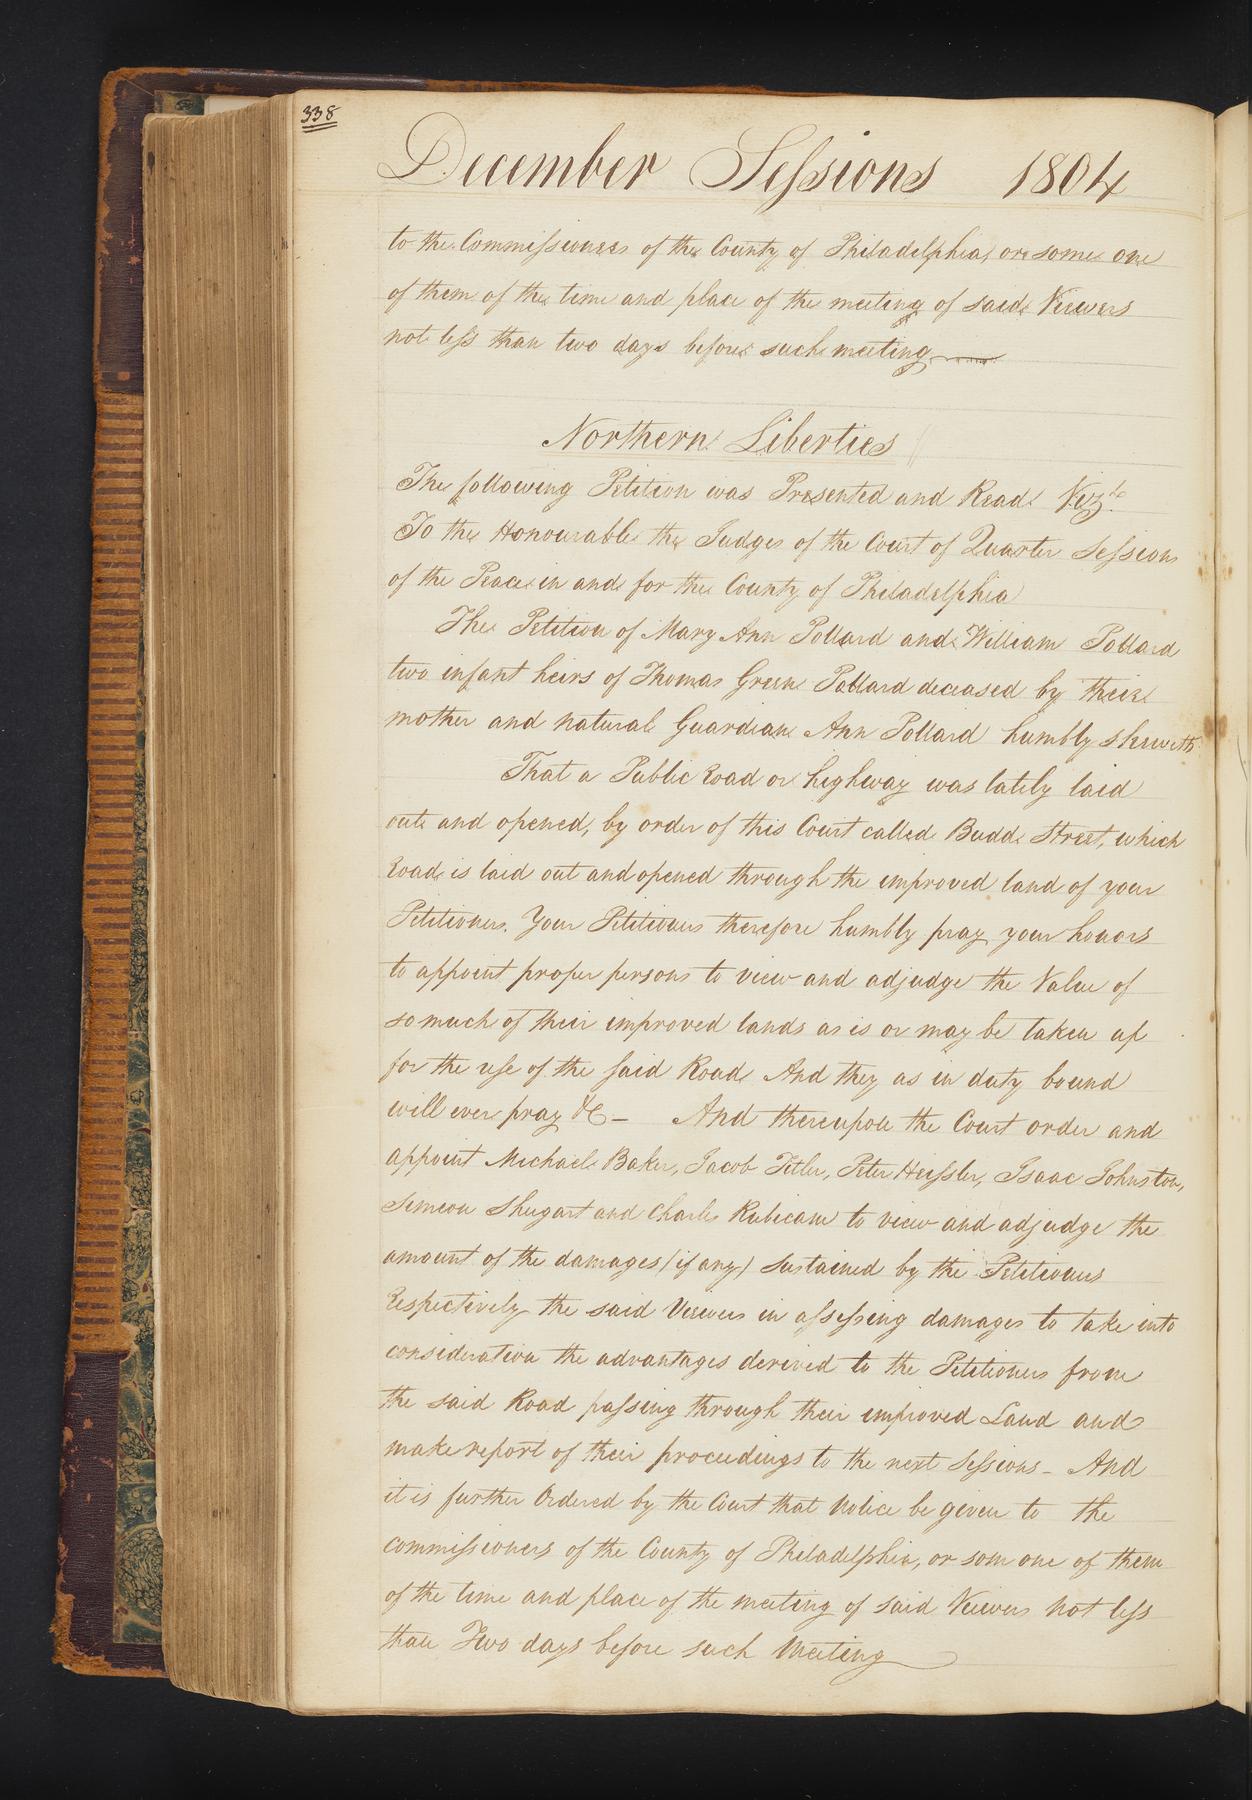 338
December Sessions 1804
to the Commissioners of the County of Philadelphia, or some one
of them of the time and place of the meeting of said Viewers
not less than two days before such meeting
Northern Liberties
The following Petition was Presented and Read Vizt.
To the Honourable the Judges of the Court of Quarter Sessions
of the Peace in and for the County of Philadelphia
The Petition of Mary Ann Pollard and William Pollard
two infant heirs of Thomas Green Pollard deceased by their
mother and natural Guardian Ann Pollard humbly sheweth
That a Public Road or highway was lately laid
out and opened, by order of this Court called Budd Street, which
Road is laid out and opened through the improved land of your
Petitioners. Your Petitioners therefore humbly pray your honors
to appoint proper persons to view and adjudge the Value of
so much of their improved lands as is or may be taken up
for the use of the said Road And they as in duty bound
will ever pray &c – And thereupon the Court order and
appoint Michael Baker, Jacob Titler, Peter Heissler, Isaac Johnston,
Simeon Shugart and Charles Rubicam to view and adjudge the
amount of the damages (if any) sustained by the Petitioners
Respectively the said Viewers in assessing damages to take into
consideration the advantages derived to the Petitioners from
the said Road passing through their improved Land and
make report of their proceedings to the next Sessions – And
it is further Ordered by the Court that Notice be given to the
commissioners of the County of Philadelphia, or som one of them
of the time and place of the meeting of said Viewers not less
than Two days before such Meeting